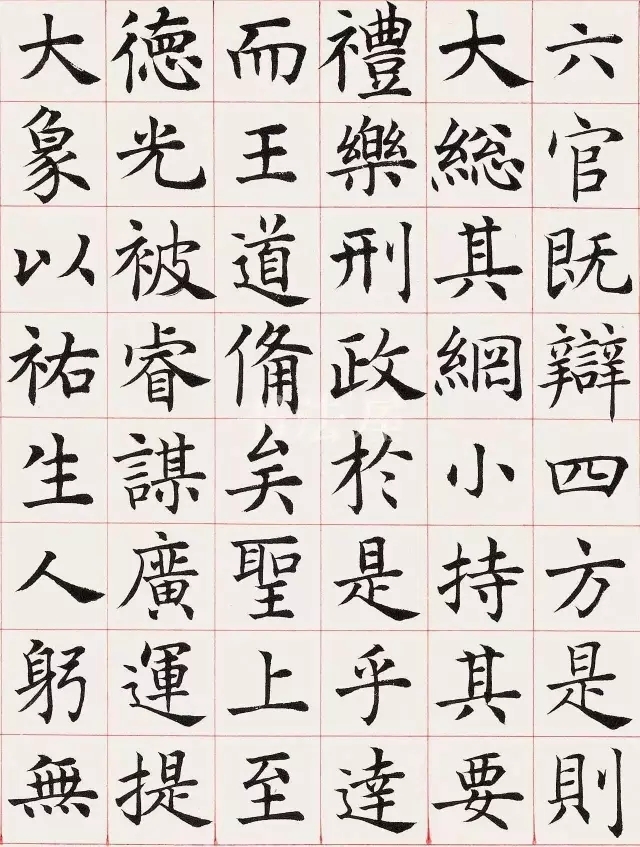 六官既辯四方是則
大總其綱小持其要
禮樂刑政於是乎達
而王道備矣聖上至
德光被睿謀廣運提
大象以祐生人躬無